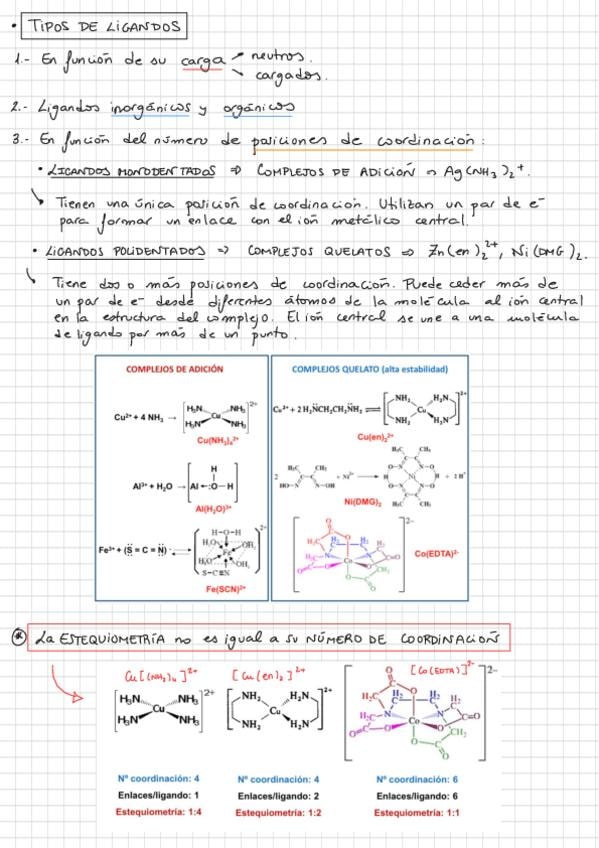 • TIPOS DE LIGANDOS
1.- En función de su carga → neutros.
→ cargados.
2.- Ligandos inorgánicos y orgánicos
3.- En función del número de posiciones de coordinación:
• LIGANDOS MONODENTADOS ⇒ COMPLEJOS DE ADICIÓN ⇒ Ag(NH₃)₂⁺.
Tienen una única posición de coordinación. Utilizan un par de e⁻
para formar un enlace con el ión metálico central.
• LIGANDOS POLIDENTADOS ⇒ COMPLEJOS QUELATOS ⇒ Zn(en)₂²⁺, Ni(DMG)₂.
Tiene dos o más posiciones de coordinación. Puede ceder más de
un par de e⁻ desde diferentes átomos de la molécula al ión central
en la estructura del complejo. El ión central se une a una molécula
de ligando por más de un punto.
COMPLEJOS DE ADICIÓN
Cu²⁺ + 4 NH₃ → [H₃N NH₃ Cu H₃N NH₃]²⁺
Cu(NH₃)₄²⁺
Al³⁺ + H₂O → [Al ←:O–H H]
Al(H₂O)³⁺
Fe³⁺ + (S̈ = C = N̈) ⇌ [H–O–H H₂O OH₂ Fe H₂O OH₂ S–C≡N]²⁺
Fe(SCN)²⁺
COMPLEJOS QUELATO (alta estabilidad)
Cu²⁺ + 2 H₂N̈CH₂CH₂N̈H₂ ⇌ [NH₂ H₂N Cu NH₂ H₂N]²⁺
Cu(en)₂²⁺
2 H₃C CH₃ HO–N N–OH + Ni²⁺ → H₃C CH₃ O–N N–O H Ni H O–N N–O H₃C CH₃ + 2 H⁺
Ni(DMG)₂
[O C O H₂C H₂ C H₂ C H₂ C H₂C N N C=O Co O=C O O C CH₂ O]²⁻
Co(EDTA)²⁻
* La ESTEQUIOMETRÍA no es igual a su NÚMERO DE COORDINACIÓN
Cu[(NH₃)₄]²⁺ [Cu(en)₂]²⁺ [Co(EDTA)]²⁻
[H₃N NH₃ Cu H₃N NH₃]²⁺ [NH₂ H₂N Cu NH₂ H₂N]²⁺ [O C O H₂C H₂ C H₂ C H₂ C H₂C N N C=O Co O=C O O C CH₂ O]²⁻
Nº coordinación: 4 Nº coordinación: 4 Nº coordinación: 6
Enlaces/ligando: 1 Enlaces/ligando: 2 Enlaces/ligando: 6
Estequiometría: 1:4 Estequiometría: 1:2 Estequiometría: 1:1